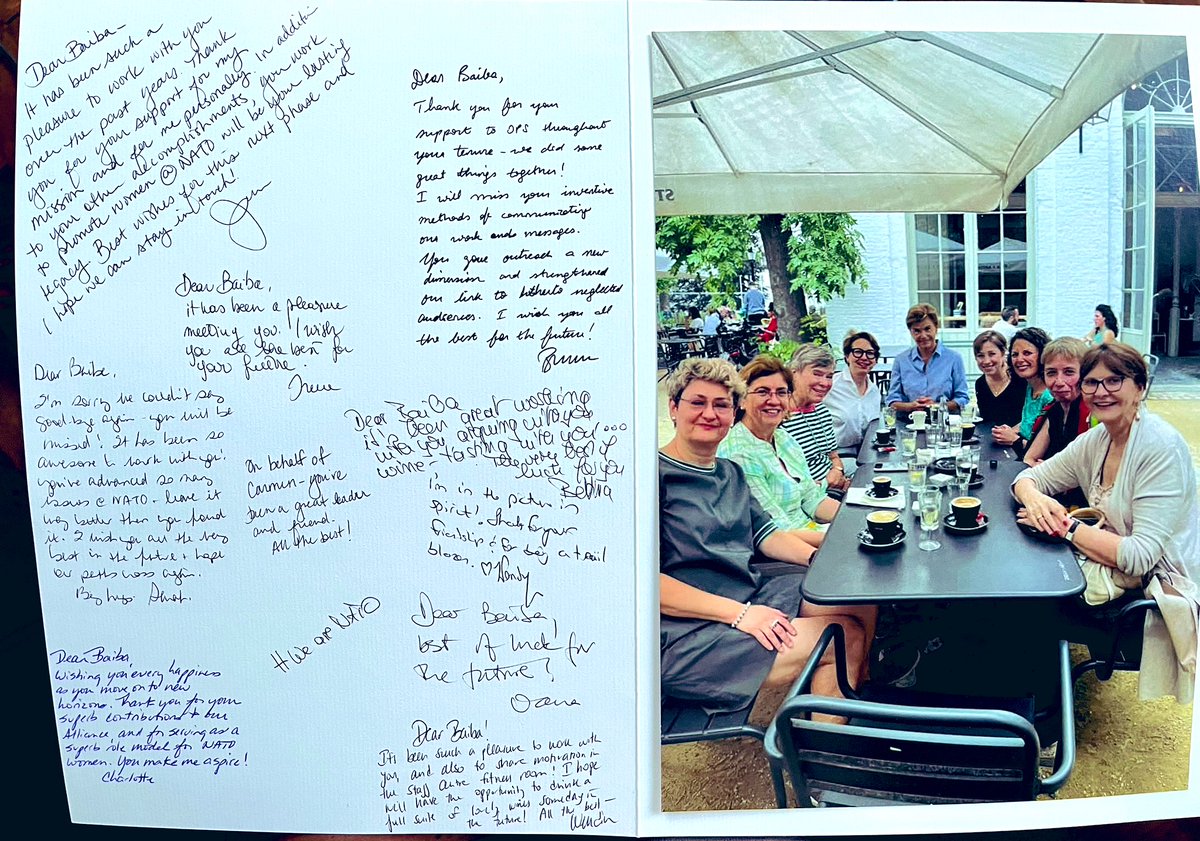 Dear Baiba-
It has been such a
pleasure to work with you
over the past years. Thank
you for your support for my
mission and for me personally. In additi
to your other accomplishments, you work
to promote women @ NATO will be your lasting
legacy. Best wishes for this next phase and
I hope we can stay in touch!
Dear Baiba,
Thank you for your
support to OPS throughout
your tenure - we did some
great things together!
I will miss your inventive
methods of communicating
our work and messages.
You gave outreach a new
dimension and strengthened
our link to hitherto neglected
audiences. I wish you all
the best for the future!
Dear Baiba,
it has been a pleasure
meeting you. I wish
you all the best for
your future.
Irene
Dear Baiba,
I'm sorry we couldn't say
good-bye again - you will be
missed! It has been so
awesome to work with you.
You've advanced so many
issues @ NATO - leave it
way better than you found
it. I wish you all the very
best in the future & hope
our paths cross again.
Big hugs.
On behalf of
Carmen - you've
been a great leader
and friend.
All the best!
Dear Baiba
it's been great working
with you, arguing with you
wine-tasting with you...
for you
Bettina
I'm in the picture in
spirit! Thanks for your
friendship & for being a trail
blazer. ♡ Wendy
#We are NATO
Dear Baiba,
best of luck for
the future!
Oana
Dear Baiba,
Wishing you every happiness
as you move on to new
horizons. Thank you for your
superb contributions to our
Alliance, and for serving as a
superb role model for NATO
women. You make me aspire!
Charlotte
Dear Baiba!
It's been such a pleasure to work with
you, and also to share motivation in
the staff centre fitness room! I hope
we'll have the opportunity to drink a
full suite of lovely wines someday in
the future! All the best -
ST